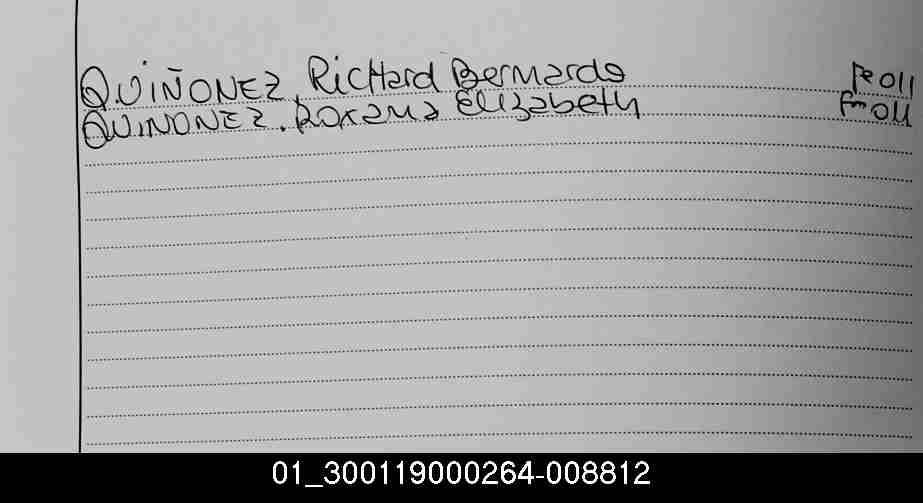 QUIÑONEZ, RicHard Bernardo Fe 011
QUINONEZ. Roxana Elizabeth Fm 011
01_300119000264-008812